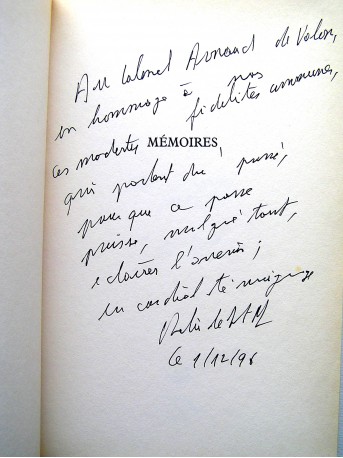 Au Colonel Arnaud de Valon,
en hommage à nos
fidelités communes,
ces modestes
MÉMOIRES
qui parlent du passé,
pour que ce passé
puisse, malgré tout,
éclairer l'avenir;
en cordial témoignage
Le 1/12/98